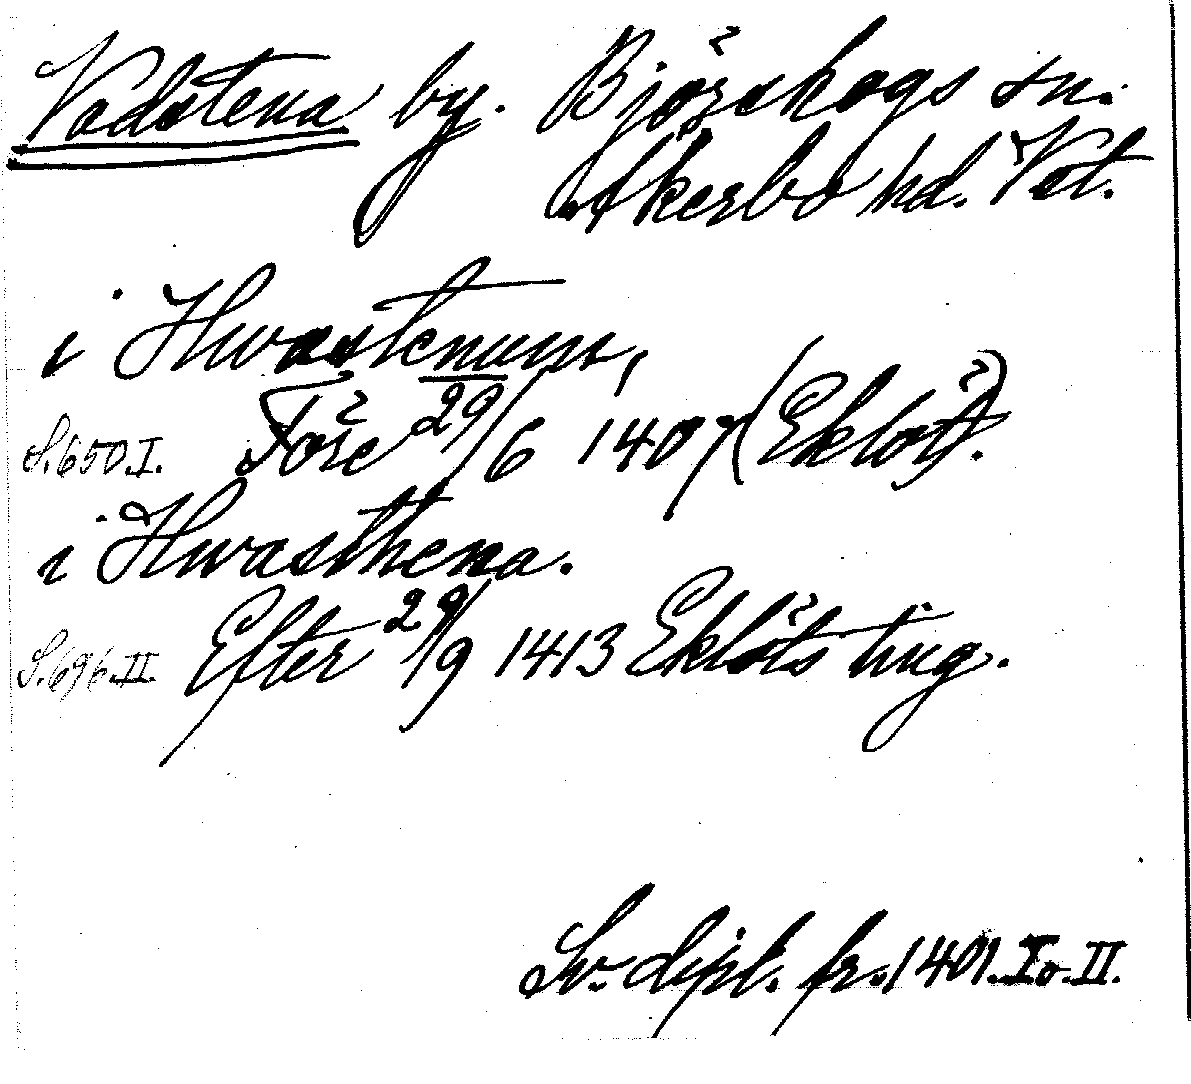 Vadstena by. Björskogs sn.
Åkerbo hd. Vstl.
i Hwastenum,
S. 650. I. Före 29/6 1407 (Eklöf).
i Hwasthena.
S. 696. II. Efter 29/9 1413 Eklöts ting.
Sv. dipl. fr. 1401. I o. II.